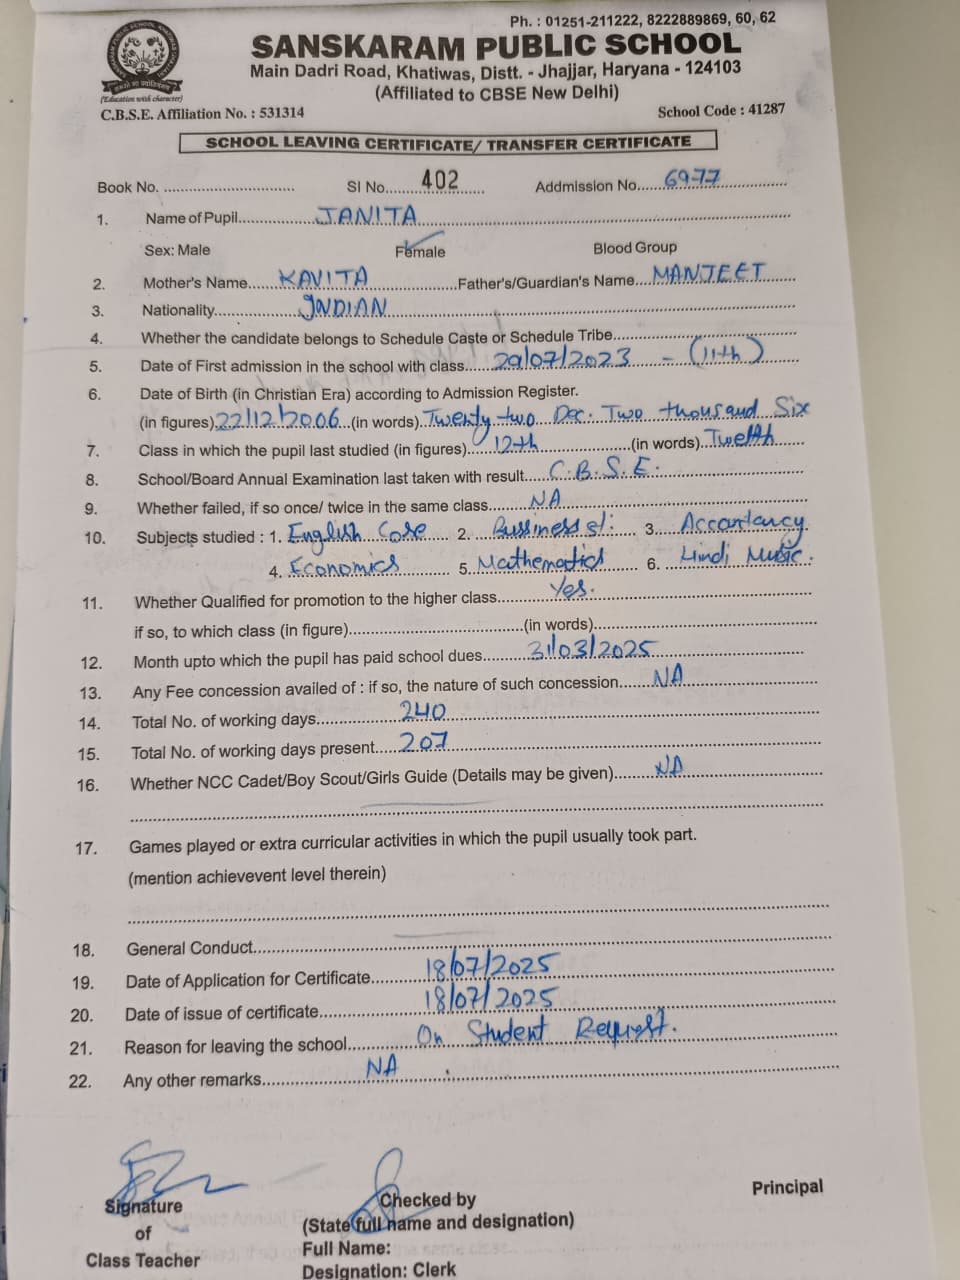 Ph. : 01251-211222, 8222889869, 60, 62
SANSKARAM PUBLIC SCHOOL
Main Dadri Road, Khatiwas, Distt. - Jhajjar, Haryana - 124103
(Affiliated to CBSE New Delhi)
(Education with character)
C.B.S.E. Affiliation No. : 531314 School Code : 41287
SCHOOL LEAVING CERTIFICATE/ TRANSFER CERTIFICATE
Book No. .............. Sl No. 402 Addmission No. 6977
1. Name of Pupil JANITA
Sex: Male Female Blood Group
2. Mother's Name KAVITA Father's/Guardian's Name MANJEET
3. Nationality INDIAN
4. Whether the candidate belongs to Schedule Caste or Schedule Tribe..............
5. Date of First admission in the school with class 29/07/2023 - (11th)
6. Date of Birth (in Christian Era) according to Admission Register.
(in figures) 22/12/2006 (in words) Twenty two Dec. Two thousand Six
7. Class in which the pupil last studied (in figures) 12th (in words) Twelth
8. School/Board Annual Examination last taken with result C.B.S.E.
9. Whether failed, if so once/ twice in the same class NA
10. Subjects studied : 1. English Core 2. Bussiness st: 3. Accountancy
4. Economics 5. Mathematics 6. Hindi Music.
11. Whether Qualified for promotion to the higher class Yes.
if so, to which class (in figure).............. (in words)..............
12. Month upto which the pupil has paid school dues 31/03/2025
13. Any Fee concession availed of : if so, the nature of such concession NA
14. Total No. of working days 240
15. Total No. of working days present 207
16. Whether NCC Cadet/Boy Scout/Girls Guide (Details may be given) NA
17. Games played or extra curricular activities in which the pupil usually took part.
(mention achievevent level therein)
18. General Conduct..............
19. Date of Application for Certificate 18/07/2025
20. Date of issue of certificate 18/07/2025
21. Reason for leaving the school On Student Request.
22. Any other remarks NA
Signature Checked by Principal
of (State full name and designation)
Class Teacher Full Name:
Designation: Clerk